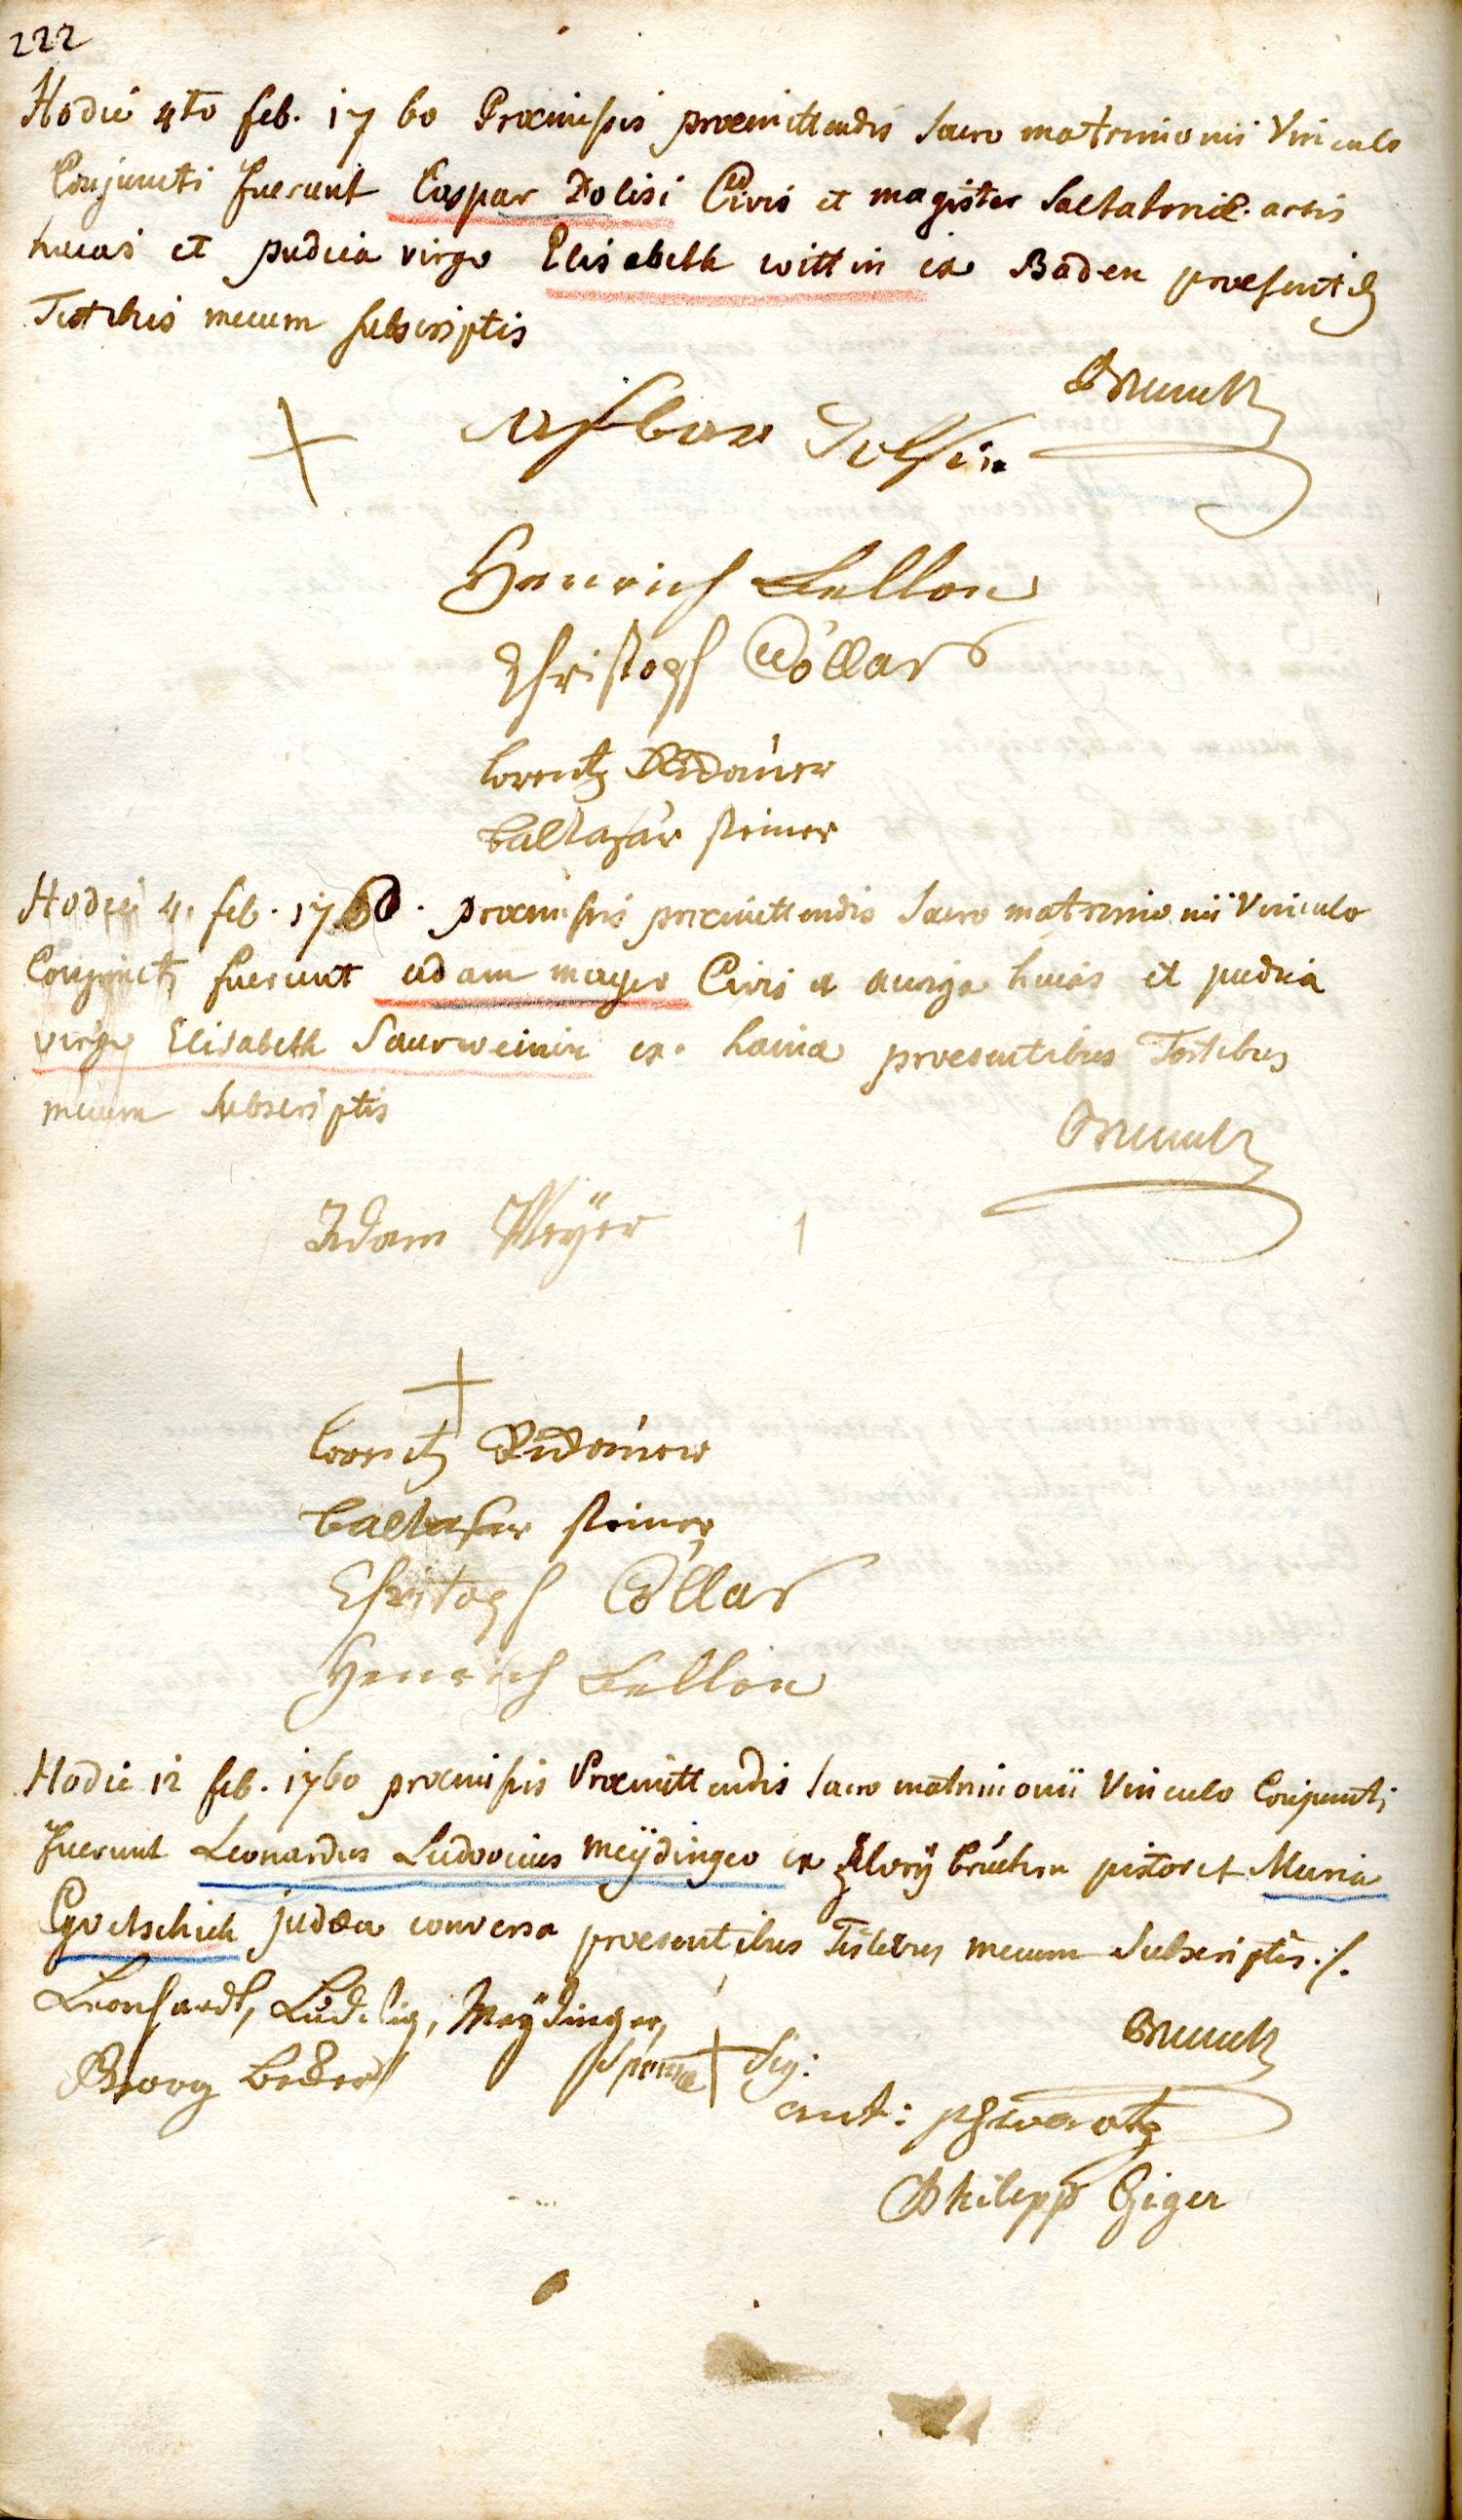 222
Hodie 4to feb. 1760 Præmissis præmittendis sacro matrimonii Vinculo
Conjuncti fuerunt Caspar Dolisi Civis et magister saltatoriæ artis
hucas et pudica virgo Elisabeth wittin ex Baden præsentib
Testibus mecum subscriptis
Brunck
+
Henrich Bellon
Christoph Cöllar
lorentz Ridauer
baltasar steiner
Hodie 4. feb. 1760. præmissis præmittendis Sacro matrimonii Vinculo
Conjuncti fuerunt adam mayer Civis et auriga hucas et pudica
virgo Elisabeth Saurweinin ex. hauia præsentibus Testibus
mecum subscriptis
Brunck
Adam Meÿer
+
lorentz Ridauer
baltasar steiner
Christoph Cöllar
Henrich Bellon
Hodie 12 feb. 1760 præmissis Præmittendis sacro matrimonii Vinculo Conjuncti
fuerunt Leonardus Ludovicus meÿdinger ex brücken pistor et Maria
judæa conversa præsentibus Testibus mecum Subscriptis ./.
Leonhardt, Ludwig, Meÿdinger,
Brunck
Georg becker
sponsæ + sig:
ant: schwartz
Philipp Giger